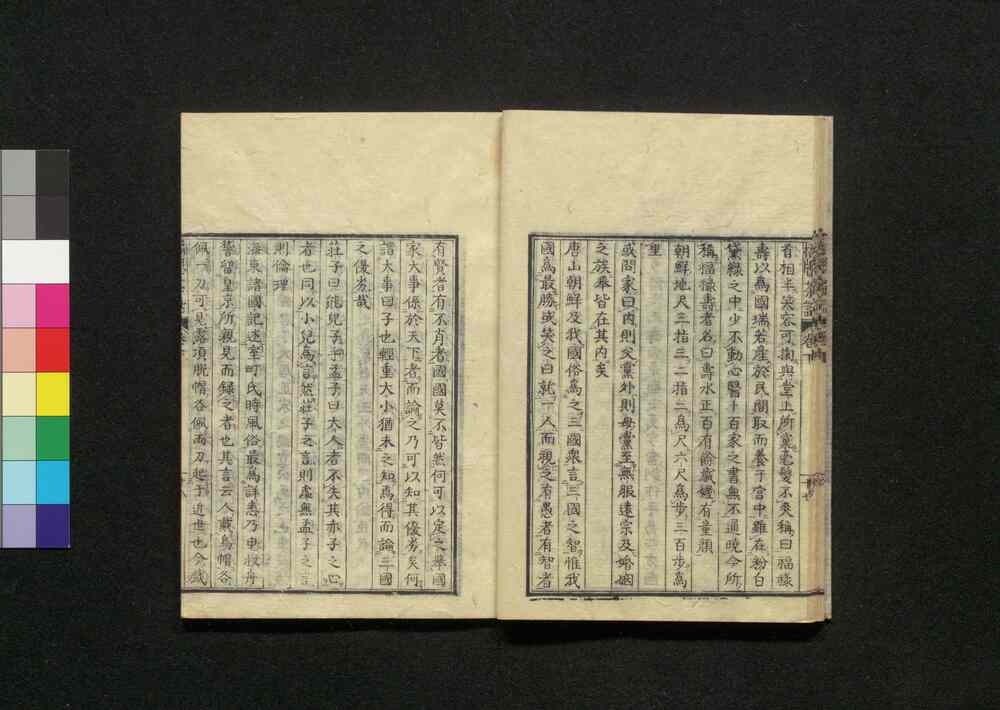 首相半笑容可掬與堂上所寫毫髮不爽稱曰福祿
壽以爲國瑞若產於民間取而養于宮中雖在粉白
黛綠之中少不動心醫卜百家之書無不通曉今所
稱福祿壽者名曰壽水正百有餘歲嬛有童顏
朝鮮地尺三指三二指二爲尺六尺爲步三百步爲
里
或問家曰內則父黨外則母黨至無服遠宗及婚姻
之族舉皆在其內矣
唐山朝鮮及我國俗爲之三國衆言三國之智惟我
國爲最勝或笑之曰就一人而視之有愚者有智者
有賢者有不肖者國國莫不皆然何可以定之舉國
家大事係於天下者而論之乃可以知其優劣矣何
謂大事曰子也輕重大小猶未之知焉得而論三國
之優劣哉
莊子曰能兒子乎孟子曰大人者不失其赤子之心
者也同以小兒爲言然莊子之言則虛無孟子之言
則倫理
海東諸國記述室町氏時風俗最爲詳悉乃申叔舟
嘗留皇京所親見而錄之者也其言云人戴烏帽各
佩一刀可見露頂脫帽各佩兩刀起于近世也今試